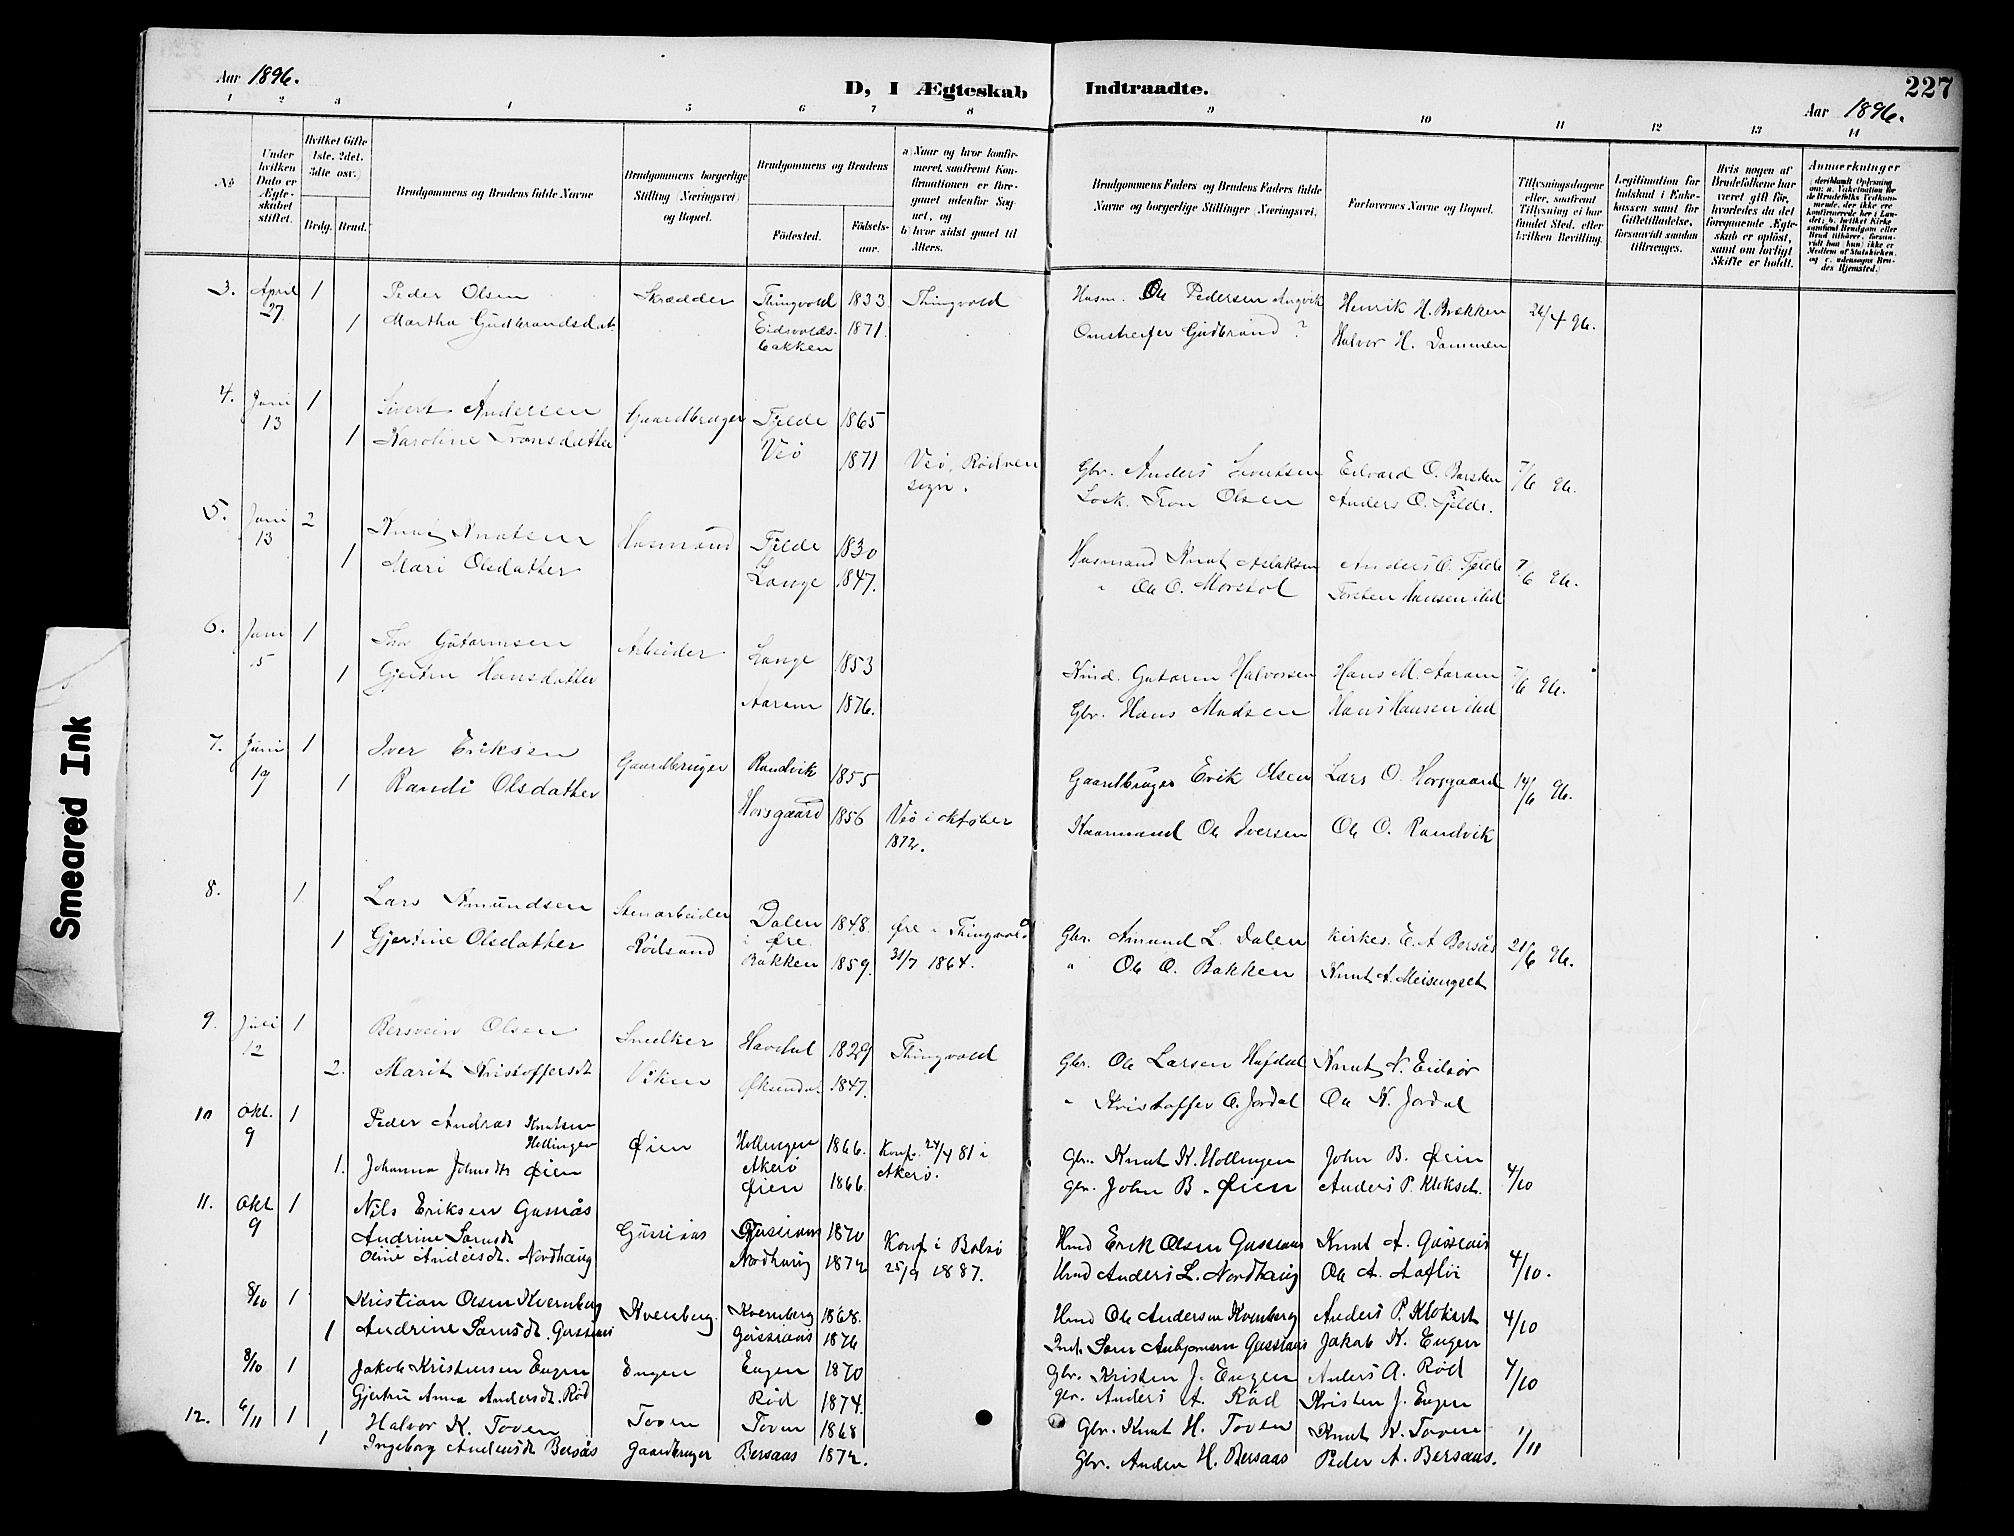 Aar 1896.
D, I Ægteskab Indtraadte.
227
Aar 1896.
1 2 3 4 5 6 7 8 9 10 11 12 13 14
No
Under hvilken Dato er Ægteskabet stiftet.
Hvilket Gifte 1ste, 2det, 3dte osv.
Brdg. Brud.
Brudgommens og Brudens fulde Navne
Brudgommens borgerlige Stilling (Næringsvei) og Bopæl.
Brudgommens og Brudens
Födested.
Födselsaar.
a) Naar og hvor konfirmeret, saafremt Konfirmationen er foregaaet udenfor Sognet, og
b) hvor sidst gaaet til Alters.
Brudgommens Faders og Brudens Faders fulde Navne og borgerlige Stillinger (Næringsvei).
Forlovernes Navne og Bopæl.
Tillysningsdagene eller, saafremt Tillysning ei har fundet Sted, efter hvilken Bevilling.
Legitimation for Indskud i Enkekassen samt for Giftetilladelse, forsaavidt saadan tiltrænges.
Hvis nogen af Brudefolkene har været gift för, hvorledes da det foregaaende Ægteskab er oplöst, samt om lovligt Skifte er holdt.
Anmærkninger
3. April 27 1 Peder Olsen Skrædder Thingvold 1833 Thingvold Husm. Ole Pedersen Angvik Henrik H. Brekken 26/4 96.
1 Martha Gudbrandsdat. Eidsvolds- bakken 1871. Omstreifer Gudbrand ? Halvor H. Dammen
4. Juni 13 1 Sivert Andersen Gaardbruger Fjelde 1865 Gbr. Anders Sivertsen Edvard O. Barsten 7/6 96.
1 Karoline Tronsdatter Veö 1871 Veö, Rödven sogn. Losk. Tron Olsen Anders O. Fjelde.
5. Juni 13 2 Knut Knutsen Husmand Fjelde 1830 Husmand Knut Aslaksen Anders O. Fjelde 7/6 96.
1 Mari Olsdatter Lange 1847. " Ole O. Morstol Torsten Hansen ibid
6. Juni 15 1 Thor Gutormsen Arbeider Lange 1853 Gutorm Halvorsen Hans M. Aaram 7/6 96.
1 Gjertru Hansdatter Aaram 1876. Gbr. Hans Madsen Hans Hansen ibid
7. Juni 19 1 Iver Eriksen Gaardbruger Randvik 1855 Gaardbruger Erik Olsen Lars O. Horsgaard 14/6 96.
1 Randi Olsdatter Horsgaard 1856 Veö i oktober 1872. Kaarmand Ole Iversen Ole O. Randvik
8. 1 Lars Amundsen Stenarbeider Dalen i Øre 1848. Øre i Thingvold Gbr. Amund L. Dalen Kirkes. E. A Bersås 21/6 96.
1 Gjertine Olsdatter Rödsand Bakken 1859. 31/7 1864. " Ole O. Bakken Knut A. Meisingset
9. Juli 12 1 Bersvein Olsen Snedker Havdal 1829 Thingvold Gbr. Ole Larsen Hafdal Knut N. Eidsör
2. Marit Kristoffersdt Viken Øksendal 1847. " Kristoffer O. Jordal Ole K. Jordal
10 Okt. 9 1 Peder Andras Knutsen Hollingen Øien Hollingen Akerö 1866. Konf. 24/4 81 i Akerö. Gbr. Knut K. Hollingen John B. Øien 4/10
1. Johanna Johnsdt Øien Øien 1866 gbr. John B. Øien Anders P. Klokset.
11. Okt 9 1 Nils Eriksen Gussiås Gussiaas Gussiaas 1870 Konf i Bolsö 25/9 1887. Hmd Erik Olsen Gussiaas Knut A. Gussiaas 4/10.
Andrine Larsdt
Oline Andersdt. Nordhaug Nordhaug 1872 Hmd Anders L. Nordhaug Ole A. Aaflöi
8/10 1 Kristian Olsen Kvernberg Kvernberg. Kvernberg 1868. Hmd Ole Andersen Kvernberg Anders P. Klokset 4/10
1 Andrine Larsdt. Gussiaas Gussiaas 1876 Lars Gussiaas Jakob K. Engen
8/10 1 Jakob Kristensen Engen Engen Engen 1870 Gbr. Kristen J. Engen Anders A. Rød 4/10
Gjertru Anna Andersdt. Rød Rød 1874. gbr. Anders A. Rød Kristen J. Engen
12. 6/11 1 Halvor K. Toven Toven Toven 1868 Gbr. Knut H. Toven Knut K. Toven 1/11
1 Ingeborg Andersdt Bersås gaardbruger Bersaas 1872. Gbr. Anders H. Bersaas Peder A. Bersaas.
Smeared Ink